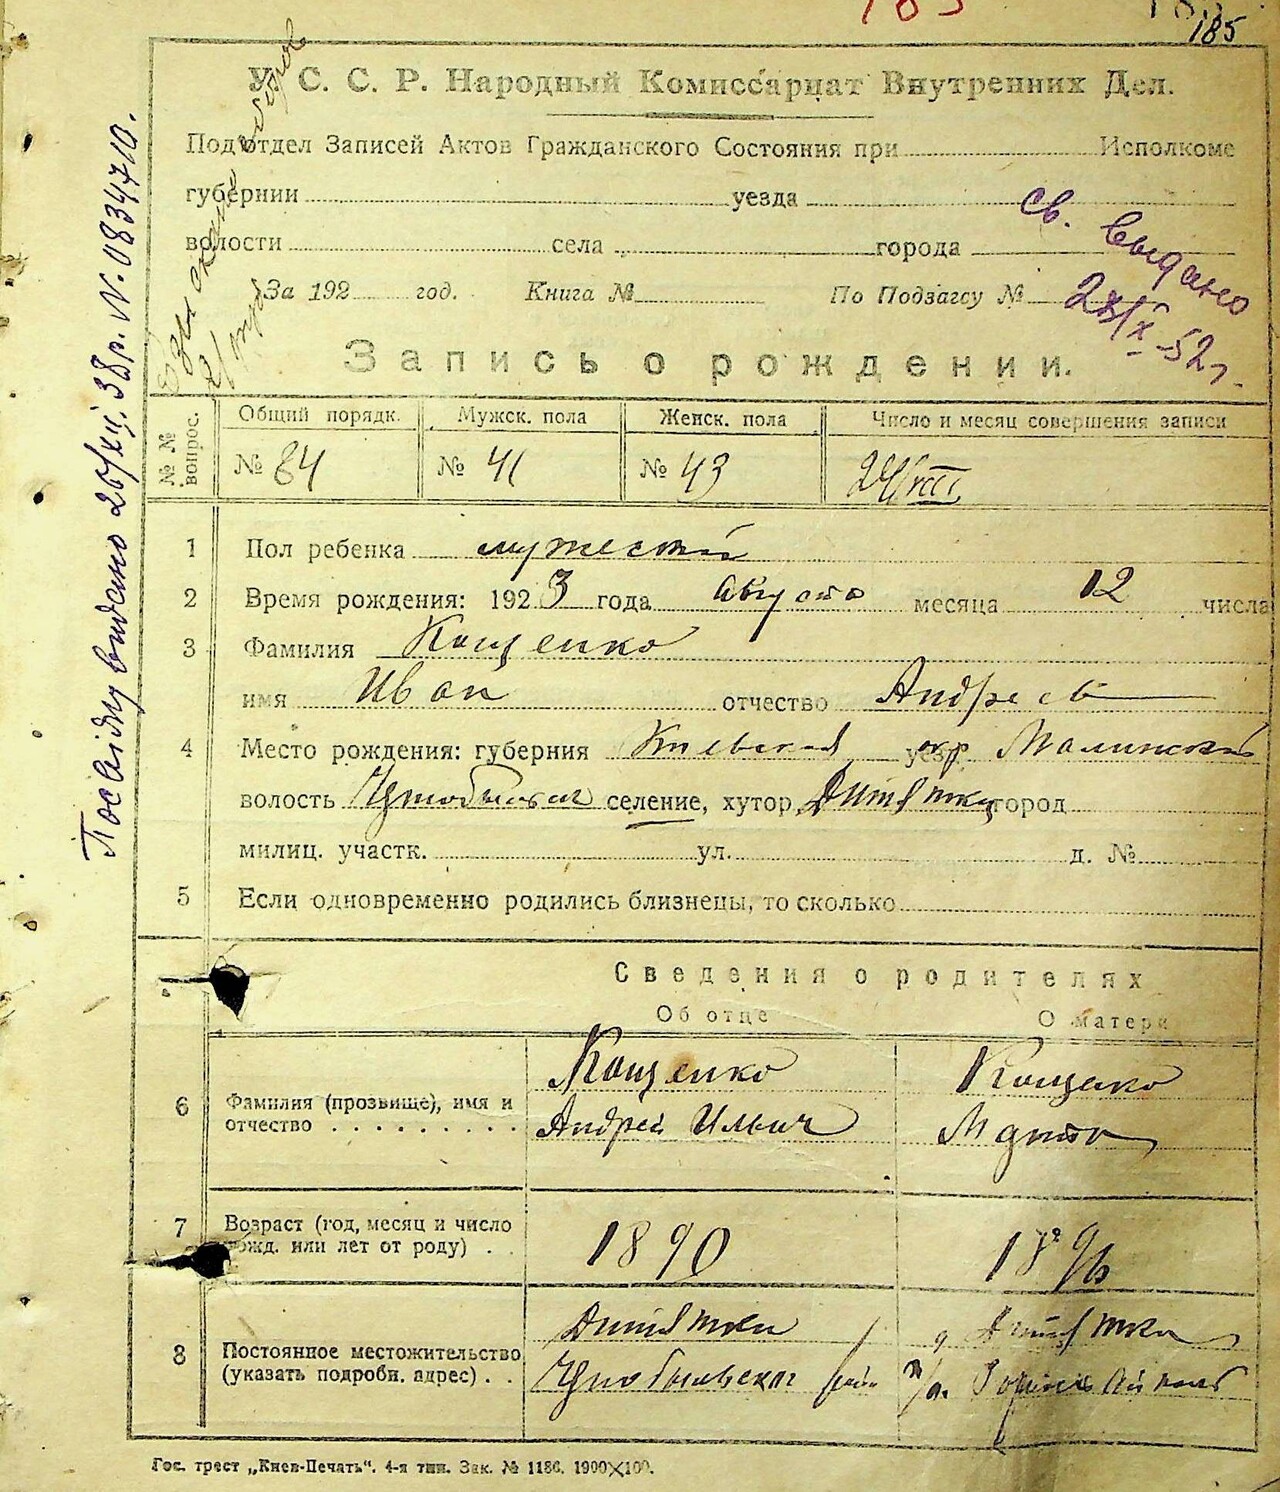 185
185
У. С. С. Р. Народный Комиссариат Внутренних Дел.
Подотдел Записей Актов Гражданского Состояния при Исполкоме
губернии уезда
волости села города
За 192 год. Книга № По Подзагсу №
св. выдано
28/X-52г.
Посвідку видано 26/XII 38р. N. 0834710.
Запись о рождении.
№ № вопрос. Общий порядк. Мужск. пола Женск. пола Число и месяц совершения записи
№ 84 № 41 № 43 24/VIII
1 Пол ребенка мужеский
2 Время рождения: 1923 года Августа месяца 12 числа
3 Фамилия Кощенко
имя Иван отчество Андреев
4 Место рождения: губерния Киевская уезд окр Малинский
волость Чернобыльская селение, хутор Дитятки город
милиц. участк. ул. д. №
5 Если одновременно родились близнецы, то сколько
Сведения о родителях
Об отце О матери
6 Фамилия (прозвище), имя и отчество Кощенко Андрей Ильич Кощенко Марта
7 Возраст (год, месяц и число рожд. или лет от роду) 1890 1896
8 Постоянное местожительство (указать подробн. адрес) Дитятки Чернобыльская д Дитятки
Гос. трест „Киев-Печать“. 4-я тип. Зак. № 1186. 1900×100.